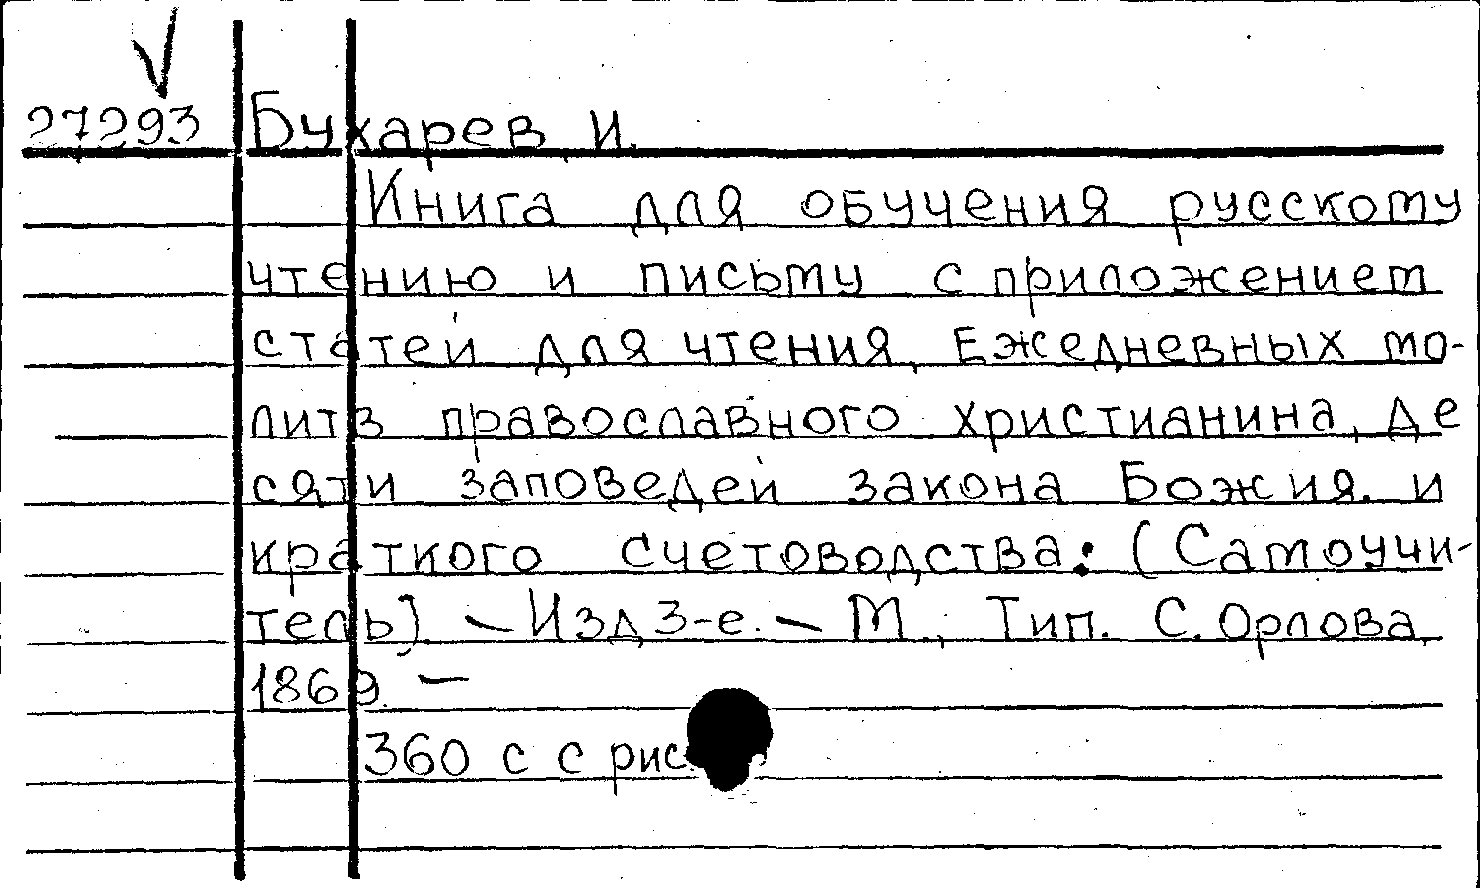 27293 Бухарев, И.
Книга для обучения русскому
чтению и письму с приложением
статей для чтения, Ежедневных мо-
литв православного христианина, де
сяти заповедей закона Божия. и
краткого счетоводства: (Самоучи-
тель). — Изд 3-е. — М., Тип. С. Орлова,
1869. —
360 с с рис.